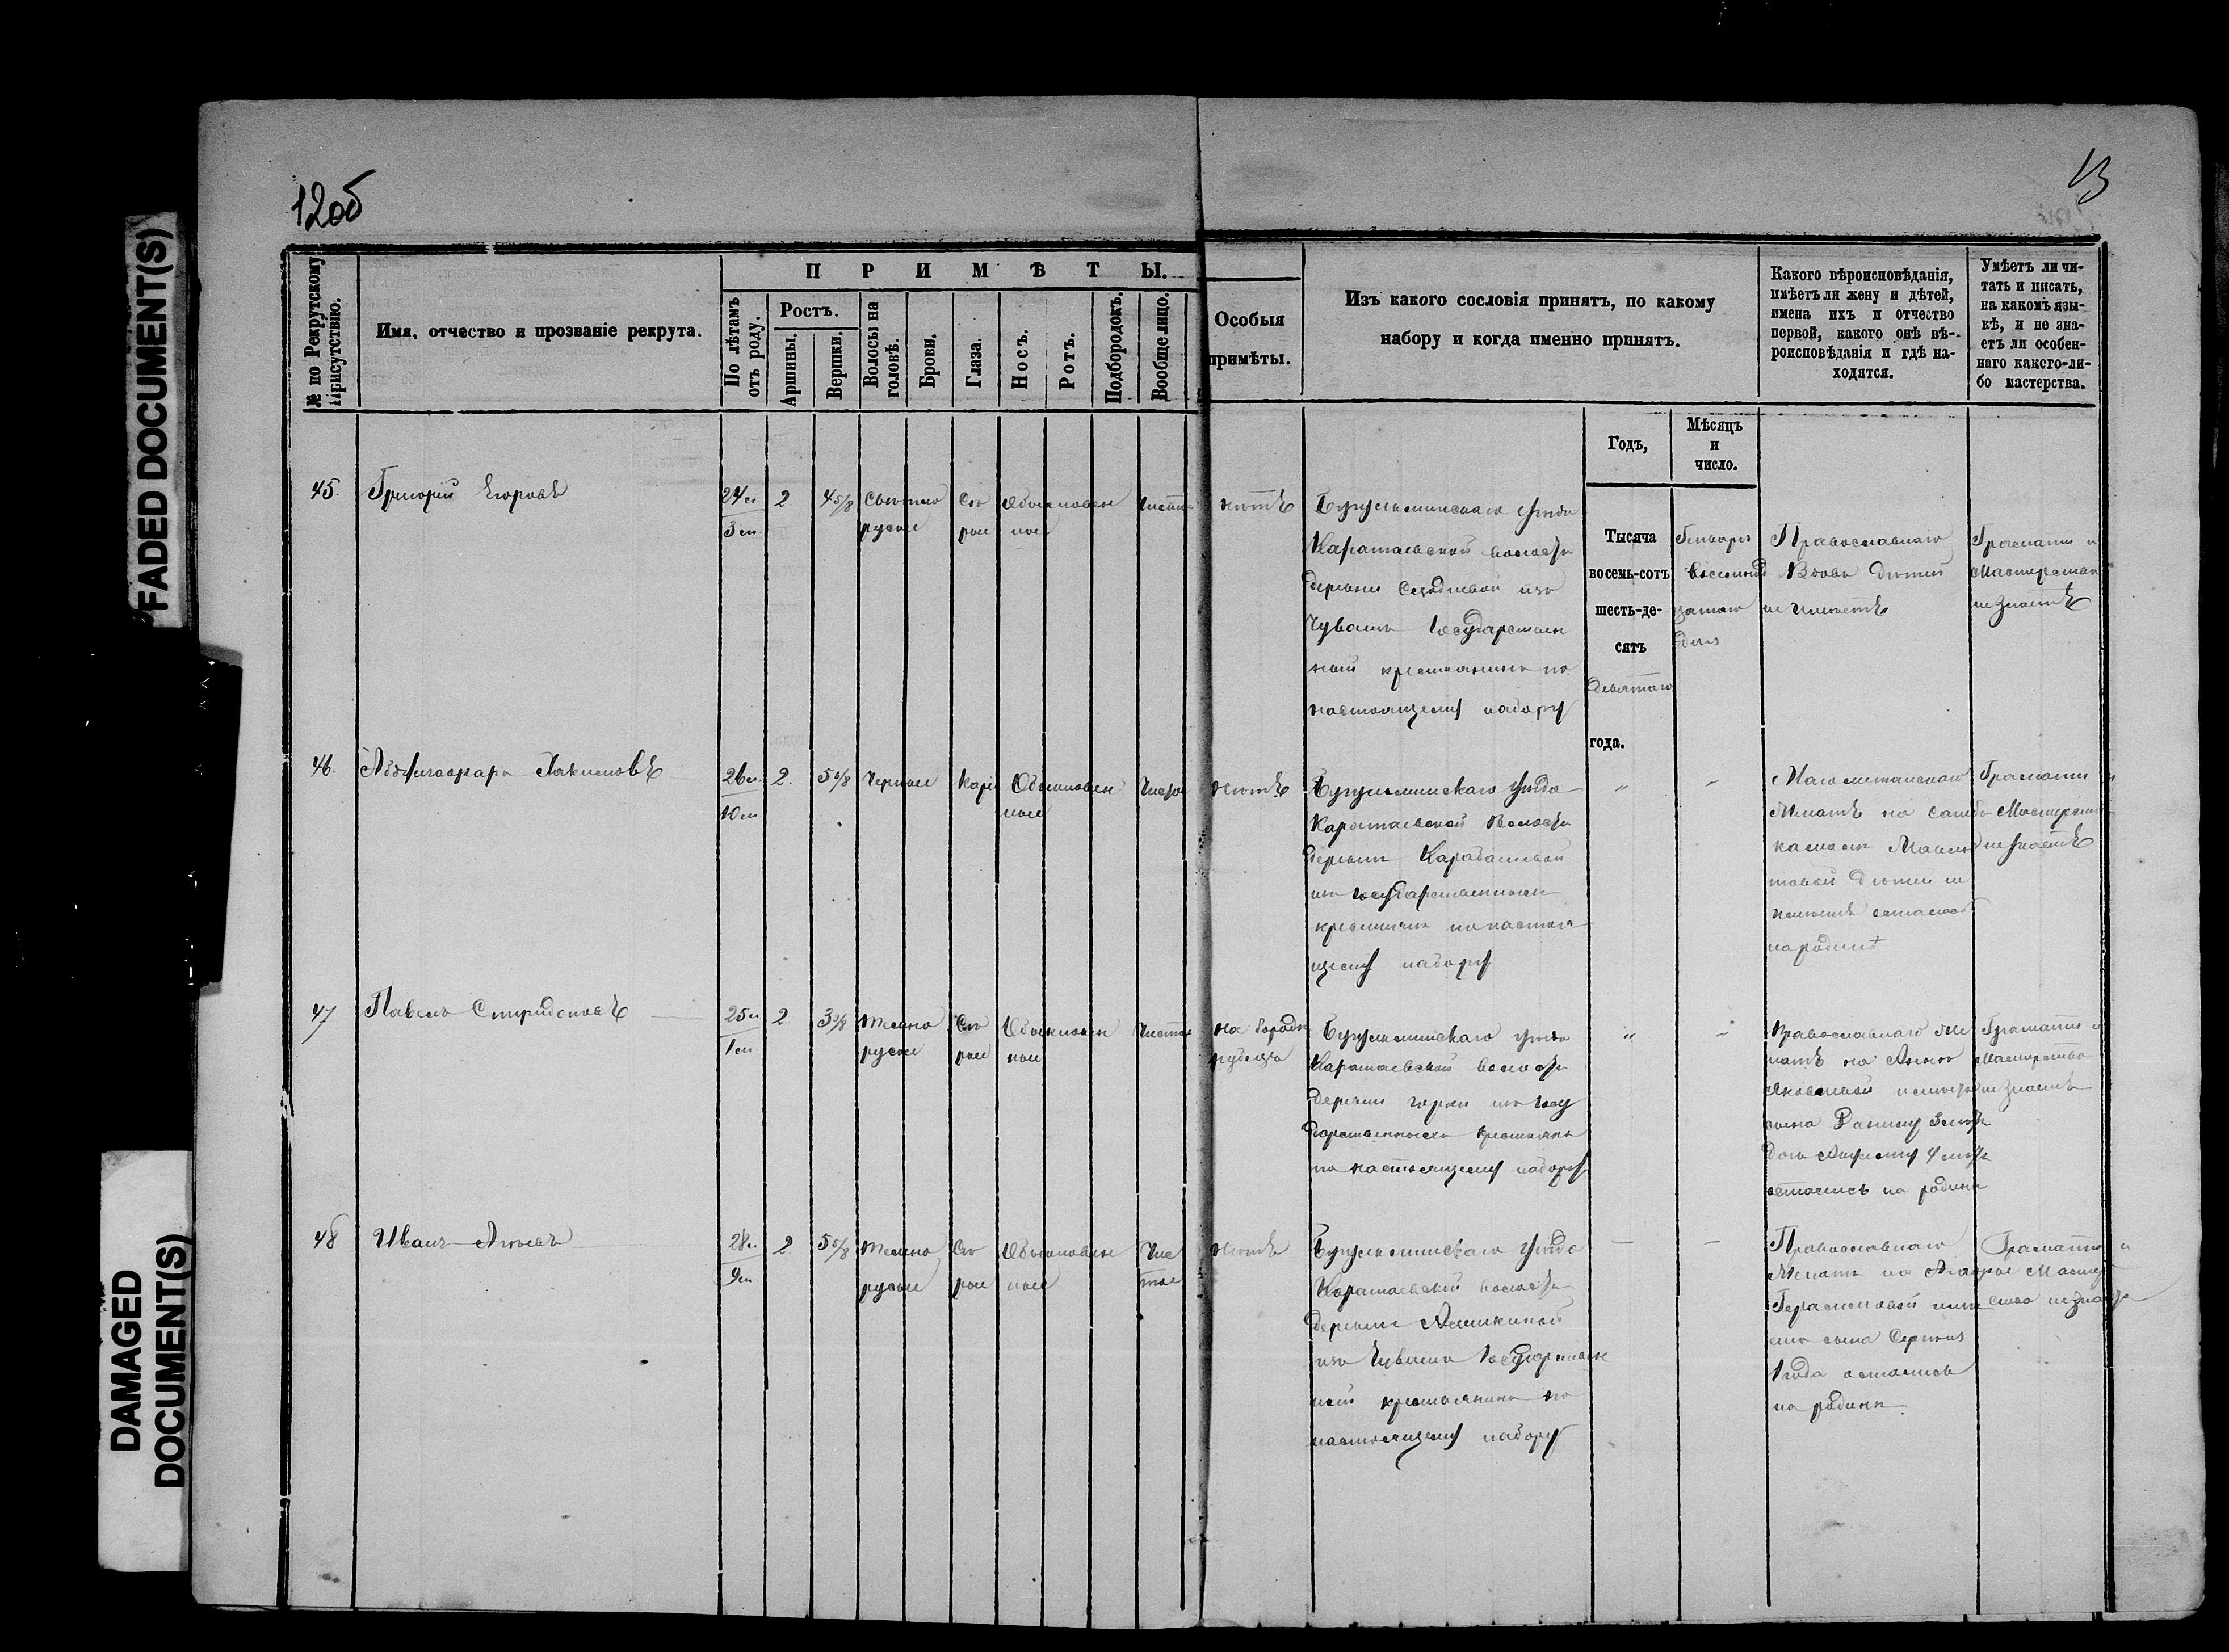 FADED DOCUMENT(S)
DAMAGED
DOCUMENT(S)
12об
13
№ по Рекрутскому
Присутствію.
Имя, отчество и прозваніе рекрута.
ПРИМѢТЫ.
По лѣтамъ
отъ роду.
Ростъ.
Аршины.
Вершки.
Волосы на
головѣ.
Брови.
Глаза.
Носъ.
Ротъ.
Подбородокъ.
Вообще лицо.
Особыя
примѣты.
Изъ какого сословія принятъ, по какому
набору и когда именно принятъ.
Какого вѣроисповѣданія,
имѣетъ ли жену и дѣтей,
имена ихъ и отчество
первой, какого онѣ вѣ-
роисповѣданія и гдѣ на-
ходятся.
Умѣетъ ли чи-
тать и писать,
на какомъ язы-
кѣ, и не зна-
етъ ли особен-
наго какого-ли-
бо мастерства.
Годъ,
Мѣсяцъ
и
число.
45.
Григорій Егоровъ
24
3
2
4 5/8
свѣтло
русые
сѣ
рые
обыкновен
ные
чистое
нѣтъ
Бугульминскаго уѣзда
Каратаевской волости
деревни
изъ
Чувашъ Государствен
ный крестьянинъ по
настоящему набору
Тысяча
восемь-сотъ
шесть-де-
сятъ
девятаго
года.
Генваря
дня
Православнаго
Вдовъ дѣтей
не имѣетъ
Грамоты и
Мастерства
не знаетъ
46.
26
10
2.
5
черные
каріе
Обыкновен
ные
чистое
нѣтъ
Бугульминскаго уѣзда
Каратаевской волости
деревни Карабашевой
изъ Государственныхъ
крестьянъ по настоя
щему набору
"
-
Магометанскаго
Женатъ на
дѣтей не
имѣетъ
на родинѣ
Грамоты и
Мастерства
не знаетъ
47
Павелъ Спиридоновъ
25
1
2
3
темно
русые
Сѣ
рые
Обыкновен
ные
чистое
на бородѣ
рубецъ
Бугульминскаго уѣзда
Каратаевской волости
деревни
изъ Госу
дарственныхъ крестьянъ
по настоящему набору
"
-
Православнаго же
натъ на Аннѣ
Яковлевой имѣетъ
сына
дочь
остались на родинѣ
Грамоты и
Мастерства
не знаетъ
48
Иванъ
28
9
2
5 5/8
темно
русые
Сѣ
рые
Обыкновен
ные
Чис
тое
нѣтъ
Бугульминскаго уѣзда
Каратаевской волости
деревни
изъ Чувашъ Государствен
ный крестьянинъ по
настоящему набору
—
—
Православнаго
Женатъ на
Герасимовой имѣ
етъ сына Сергѣя
1 года остались
на родинѣ.
Грамоты и
Мастер
ства не знаетъ